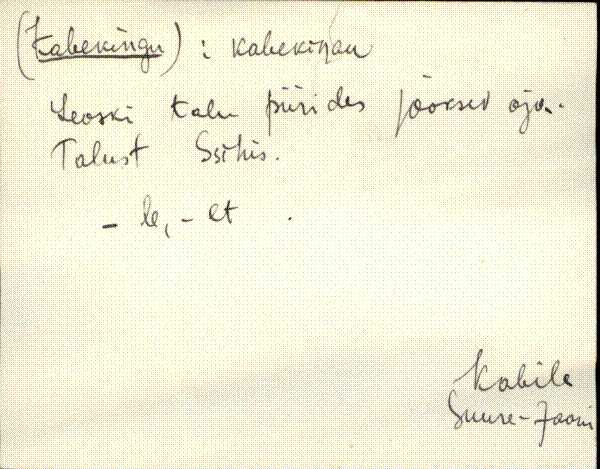 (Kabekingu) : kabekiŋŋu
Leoski talu piirides jooksev oja.
Talust SSihis.
- le, - et .
Kobile
Suure-Jaani